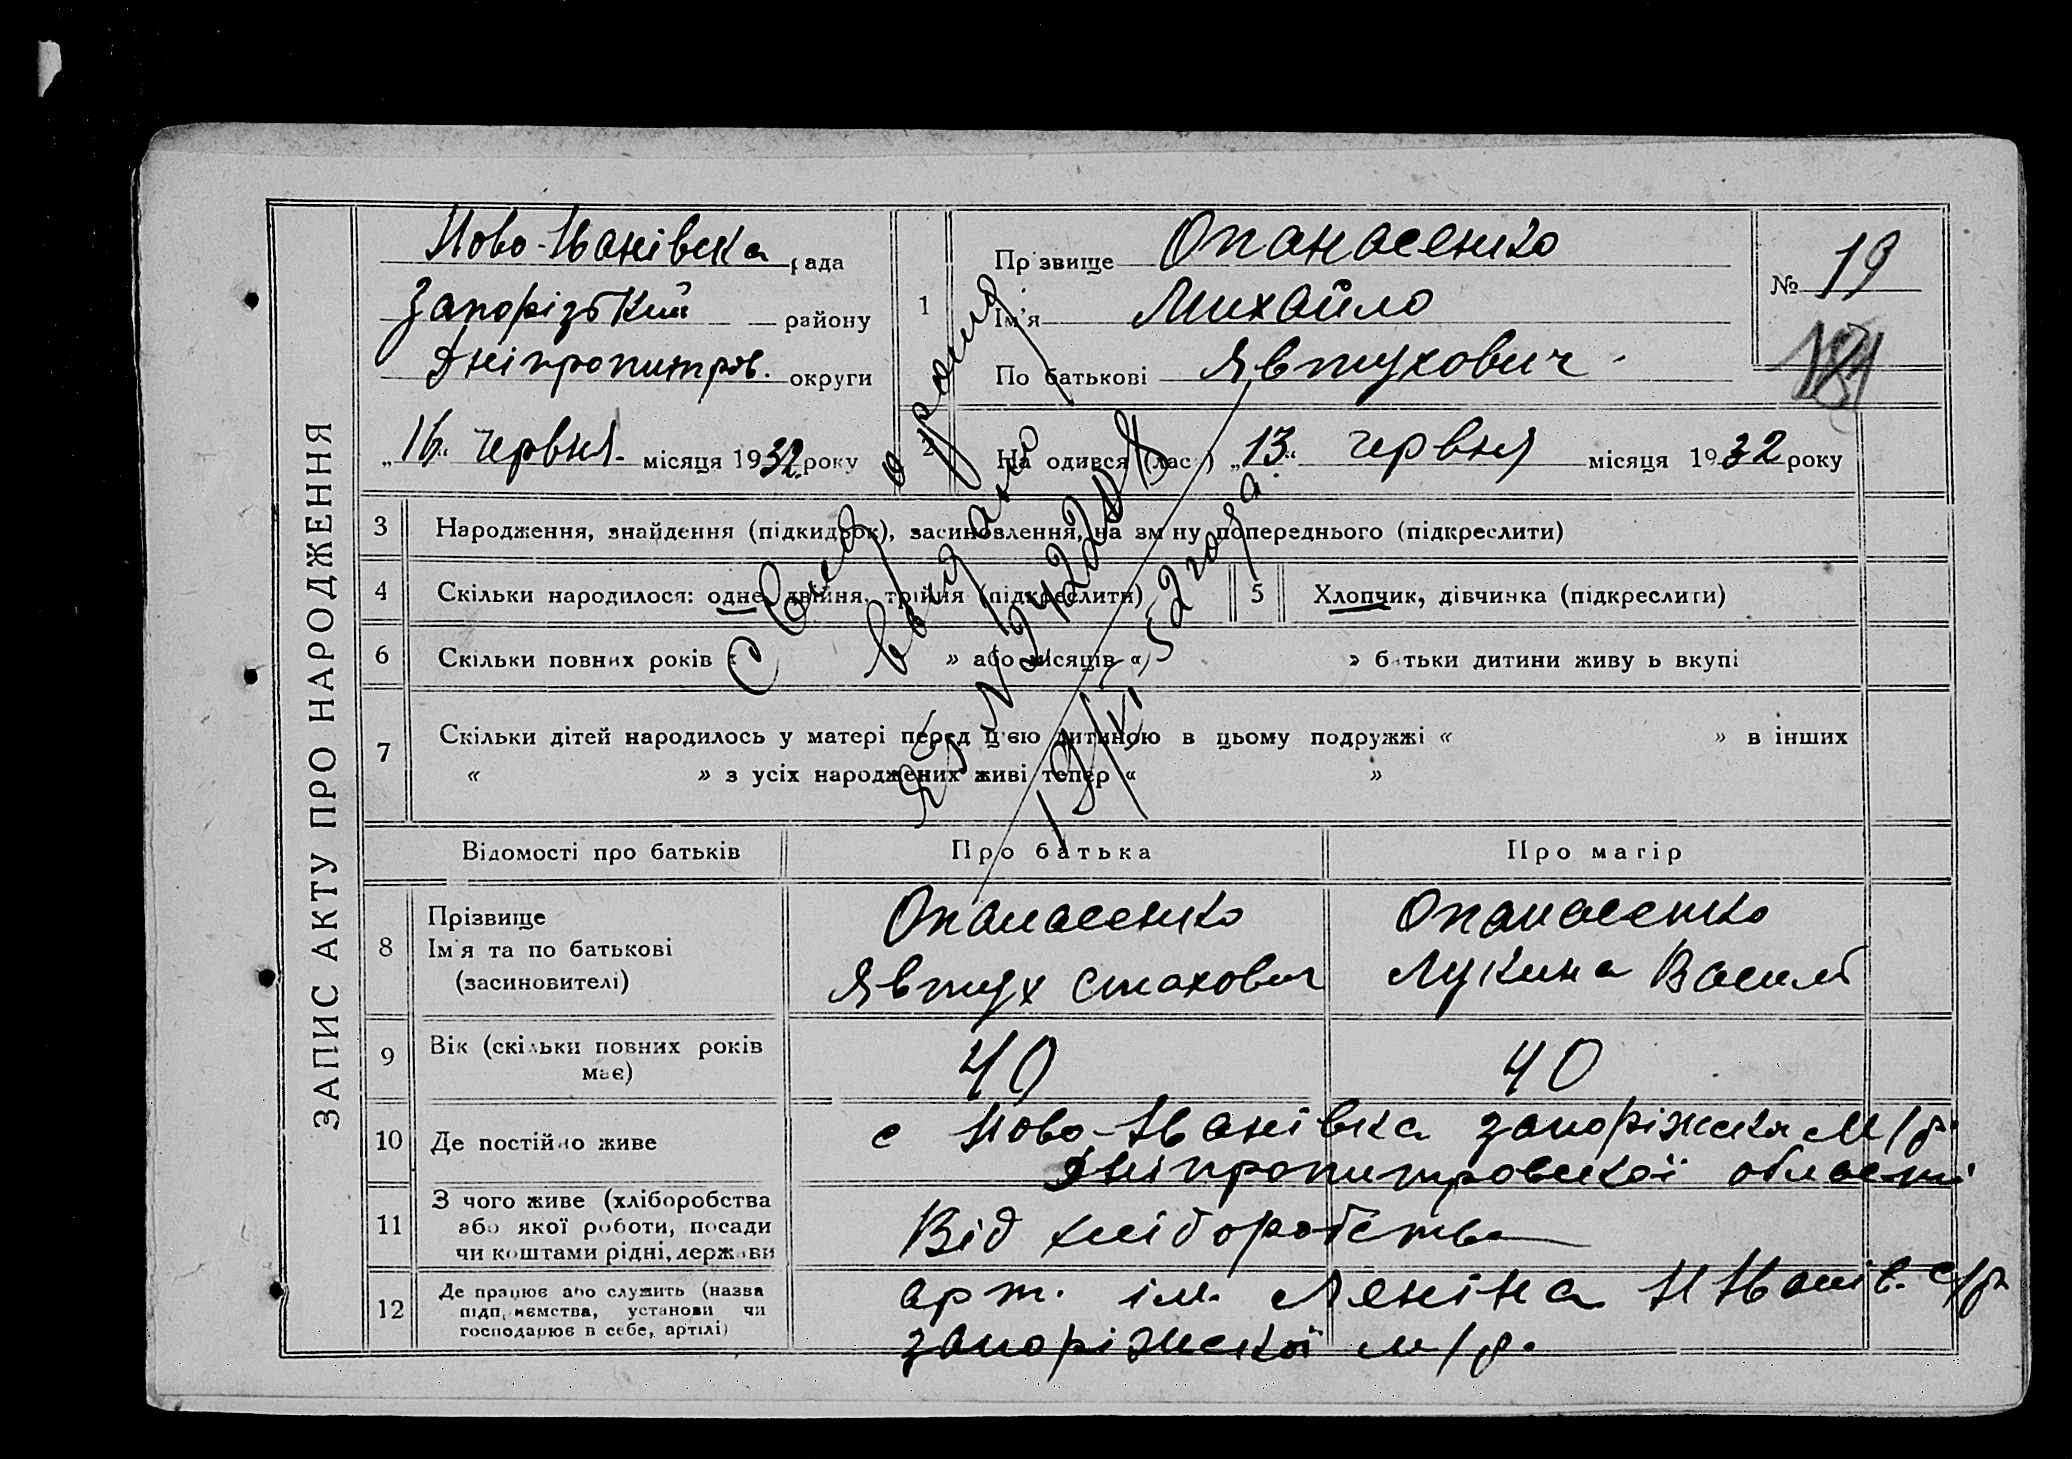 ЗАПИС АКТУ ПРО НАРОДЖЕННЯ
Ново-Іванівска рада
Запорізький району
Дніпропитров. округи
„16“ червня місяця 1932 року
1 Прізвище Опанасенко
Ім'я Михайло
По батькові Явтухович
№ 19
181
2 Народився (лась) „13“ червня місяця 1932 року
3 Народження, знайдення (підкидьок), засиновлення, на зміну попереднього (підкреслити)
4 Скільки народилося: одне, двійня, трійня (підкреслити) 5 Хлопчик, дівчинка (підкреслити)
6 Скільки повних років « » або місяців « » батьки дитини живуть вкупі
7 Скільки дітей народилось у матері перед цією дитиною в цьому подружжі « » в інших
« » з усіх народжених живі тепер « »
С в о урони
выдано
ЯЮ № 242208
19/XI-52 года.
Відомості про батьків Про батька Про матір
8 Прізвище
Ім'я та по батькові
(засиновителі)
Опанасенко
Явтух Стахович
Опанасенко
Лукина Василь
9 Вік (скільки повних років
має)
40 40
10 Де постійно живе
с Ново-Іванівка запоріжскя м/р.
Дніпропитровскої області
11 З чого живе (хліборобства
або якої роботи, посади
чи коштами рідні, держави
Від хліборобства
12 Де працює або служить (назва
підприємства, установи чи
господарює в себе, артілі)
арт. ім. Леніна Н Іванів. с/р
запоріжскої м/р.